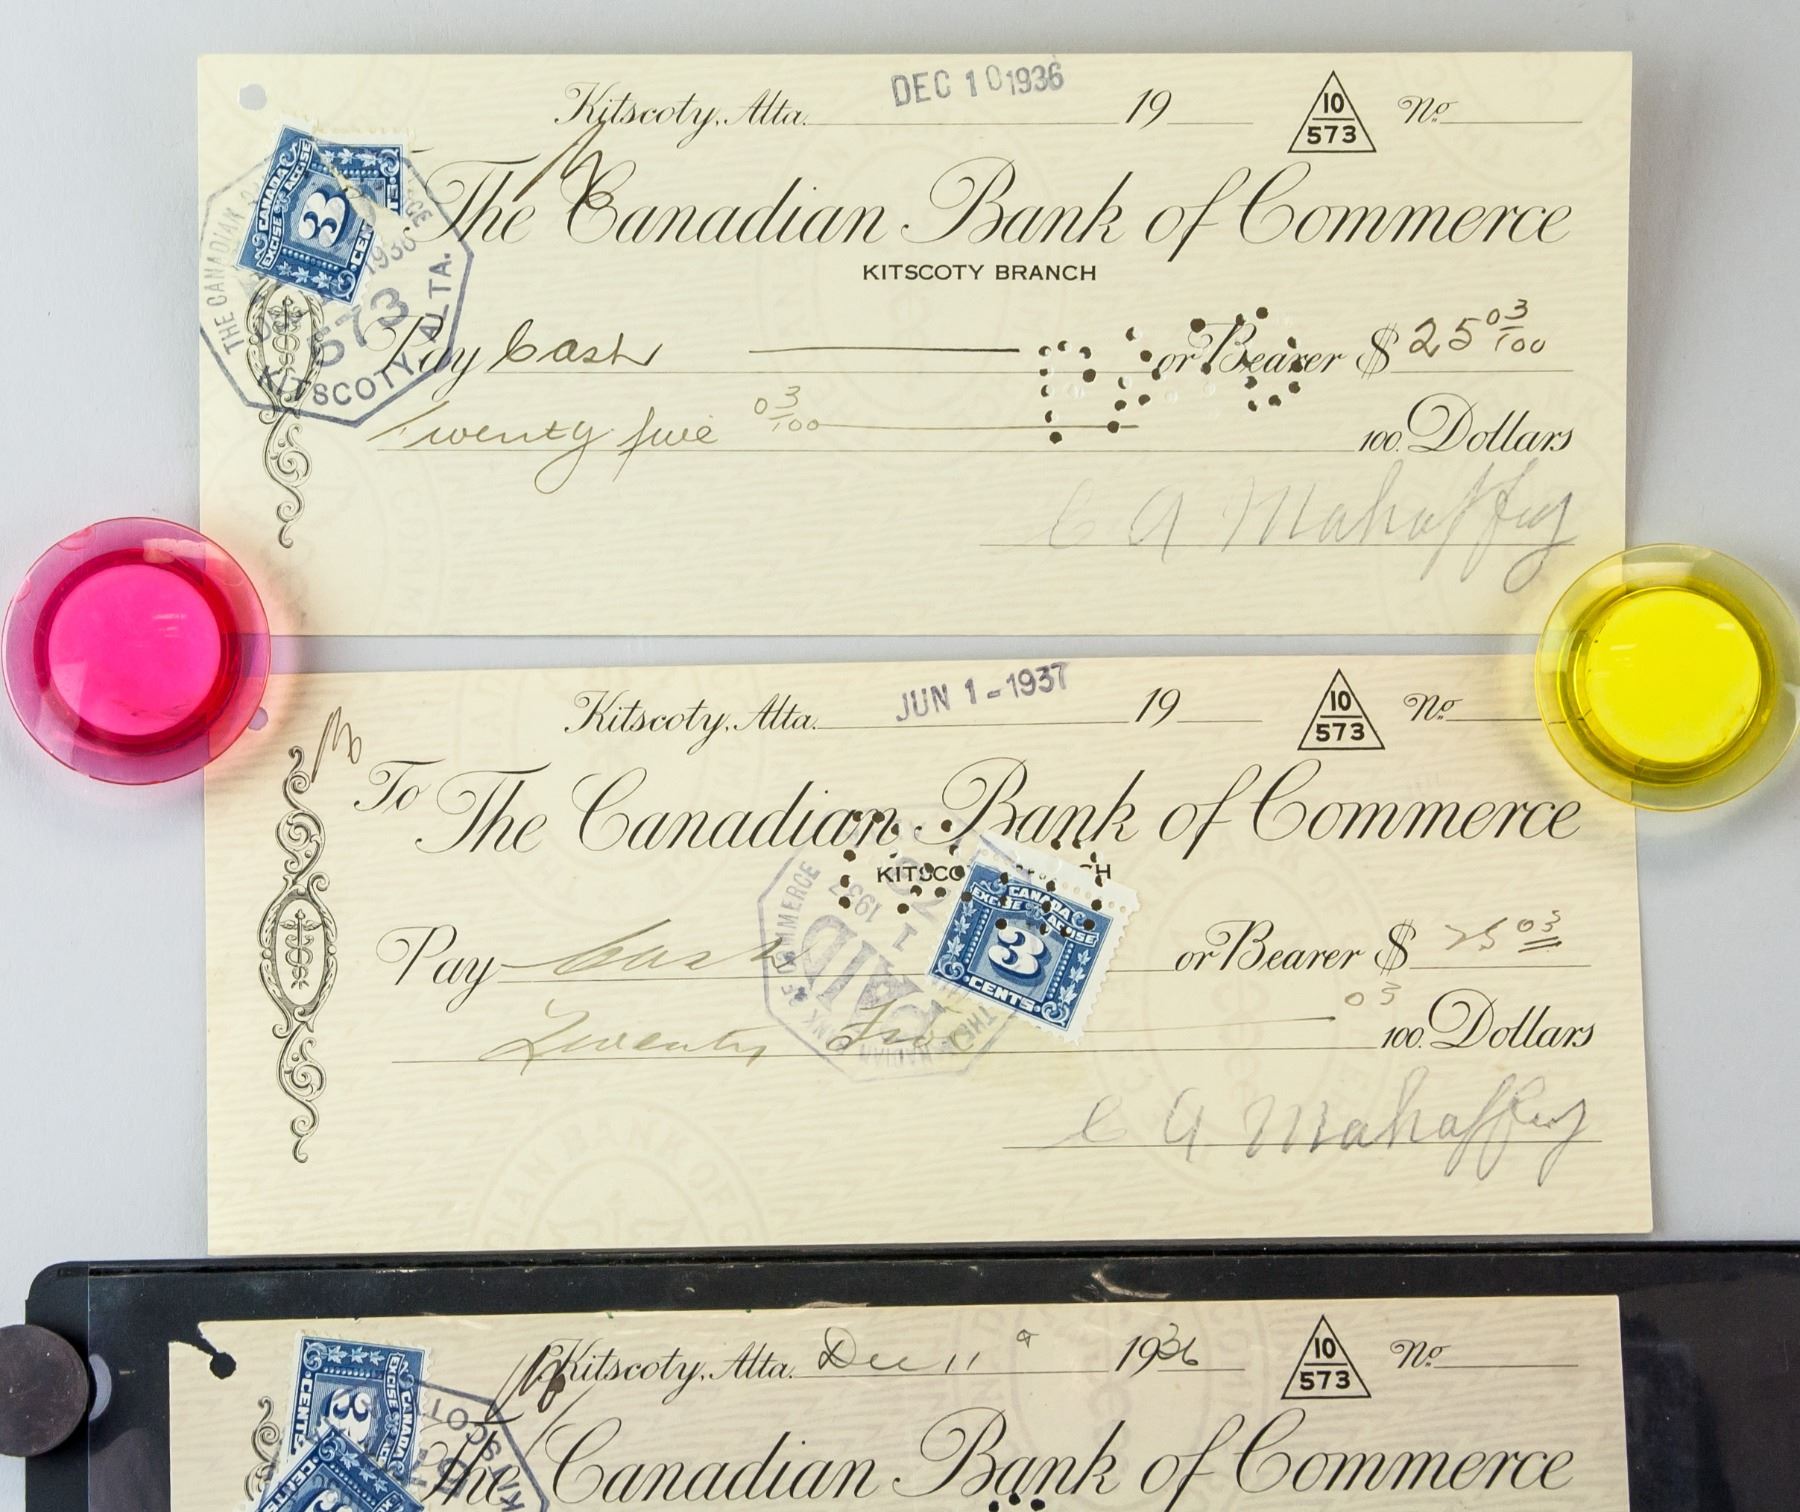 DEC 10 1936
Kitscoty, Alta. 19 10/573 No.
The Canadian Bank of Commerce
KITSCOTY BRANCH
CANADA
EXCISE ACCISE
3
CEN
THE CANADIAN
1936
573
KITSCOTY, ALTA.
Pay Cash or Bearer $ 25 03/100
Twenty five 03/100 100 Dollars
C A Mahaffey
JUN 1-1937
Kitscoty, Alta. 19 10/573 No.
To The Canadian Bank of Commerce
KITSCO H
CANADA
EXCISE ACCISE
3
CENTS
PAID
Pay Cash or Bearer $ 25 03
Twenty Five 03 100 Dollars
C A Mahaffey
Kitscoty, Alta. Dec 11 1936 10/573 No.
CANADA
EXCISE
3
CENTS
KITSCOT
The Canadian Bank of Commerce